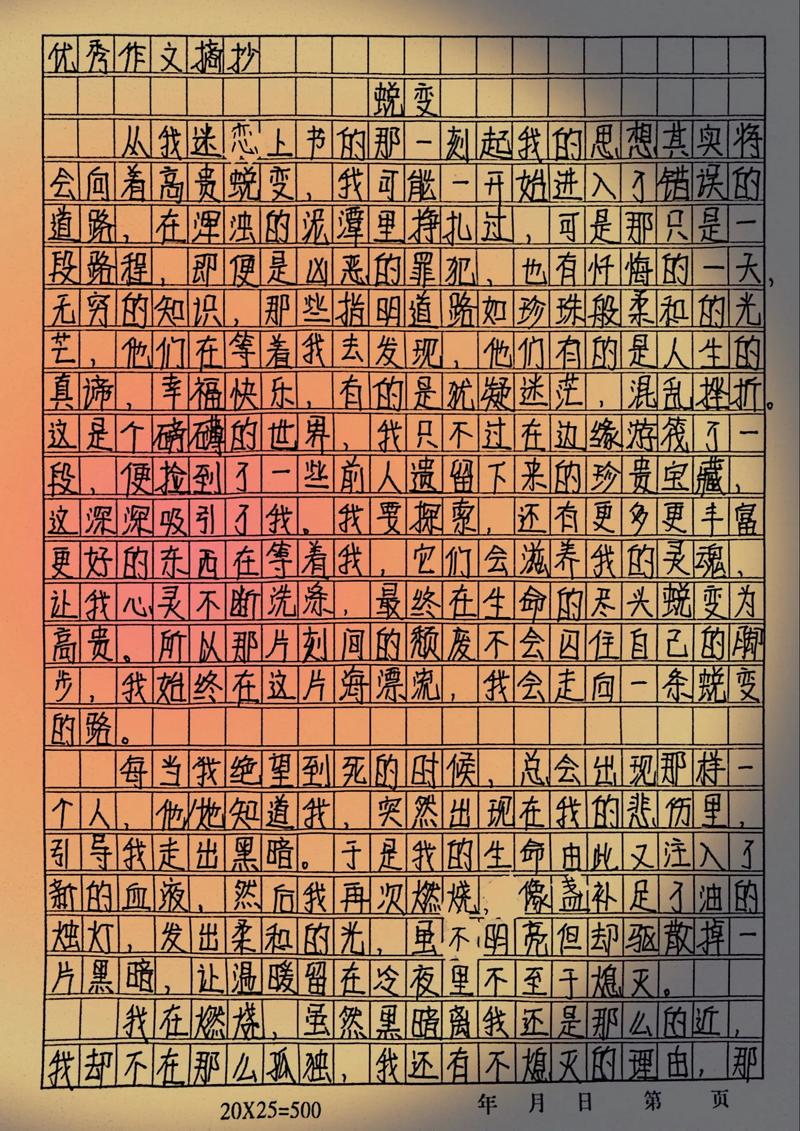 优秀作文摘抄
蜕变
从我迷恋上书的那一刻起我的思想其实将
会向着高贵蜕变，我可能一开始进入了错误的
道路，在浑浊的泥潭里挣扎过，可是那只是一
段路程，即便是凶恶的罪犯，也有忏悔的一天，
无穷的知识，那些指明道路如珍珠般柔和的光
芒，他们在等着我去发现，他们有的是人生的
真谛，幸福快乐，有的是犹疑迷茫，混乱挫折。
这是个磅礴的世界，我只不过在边缘游筏了一
段，便捡到了一些前人遗留下来的珍贵宝藏，
这深深吸引了我。我要探索，还有更多更丰富
更好的东西在等着我，它们会滋养我的灵魂，
让我心灵不断洗涤，最终在生命的尽头蜕变为
高贵。所以那片刻间的颓废不会囚住自己的脚
步，我始终在这片海漂流，我会走向一条蜕变
的路。
每当我绝望到死的时候，总会出现那样一
个人，他/她知道我，突然出现在我的悲伤里，
引导我走出黑暗。于是我的生命由此又注入了
新的血液，然后我再次燃烧，像盏补足了油的
烛灯，发出柔和的光，虽不明亮但却驱散掉一
片黑暗，让温暖留在冷夜里不至于熄灭。
我在燃烧，虽然黑暗离我还是那么的近，
我却不在那么孤独，我还有不熄灭的理由，那
20X25=500 年 月 日 第 页